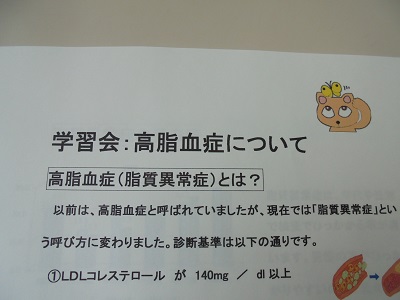 学習会:高脂血症について
高脂血症(脂質異常症)とは?
以前は、高脂血症と呼ばれていましたが、現在では「脂質異常症」とい
う呼び方に変わりました。診断基準は以下の通りです。
①LDLコレステロール が 140mg / dl以上